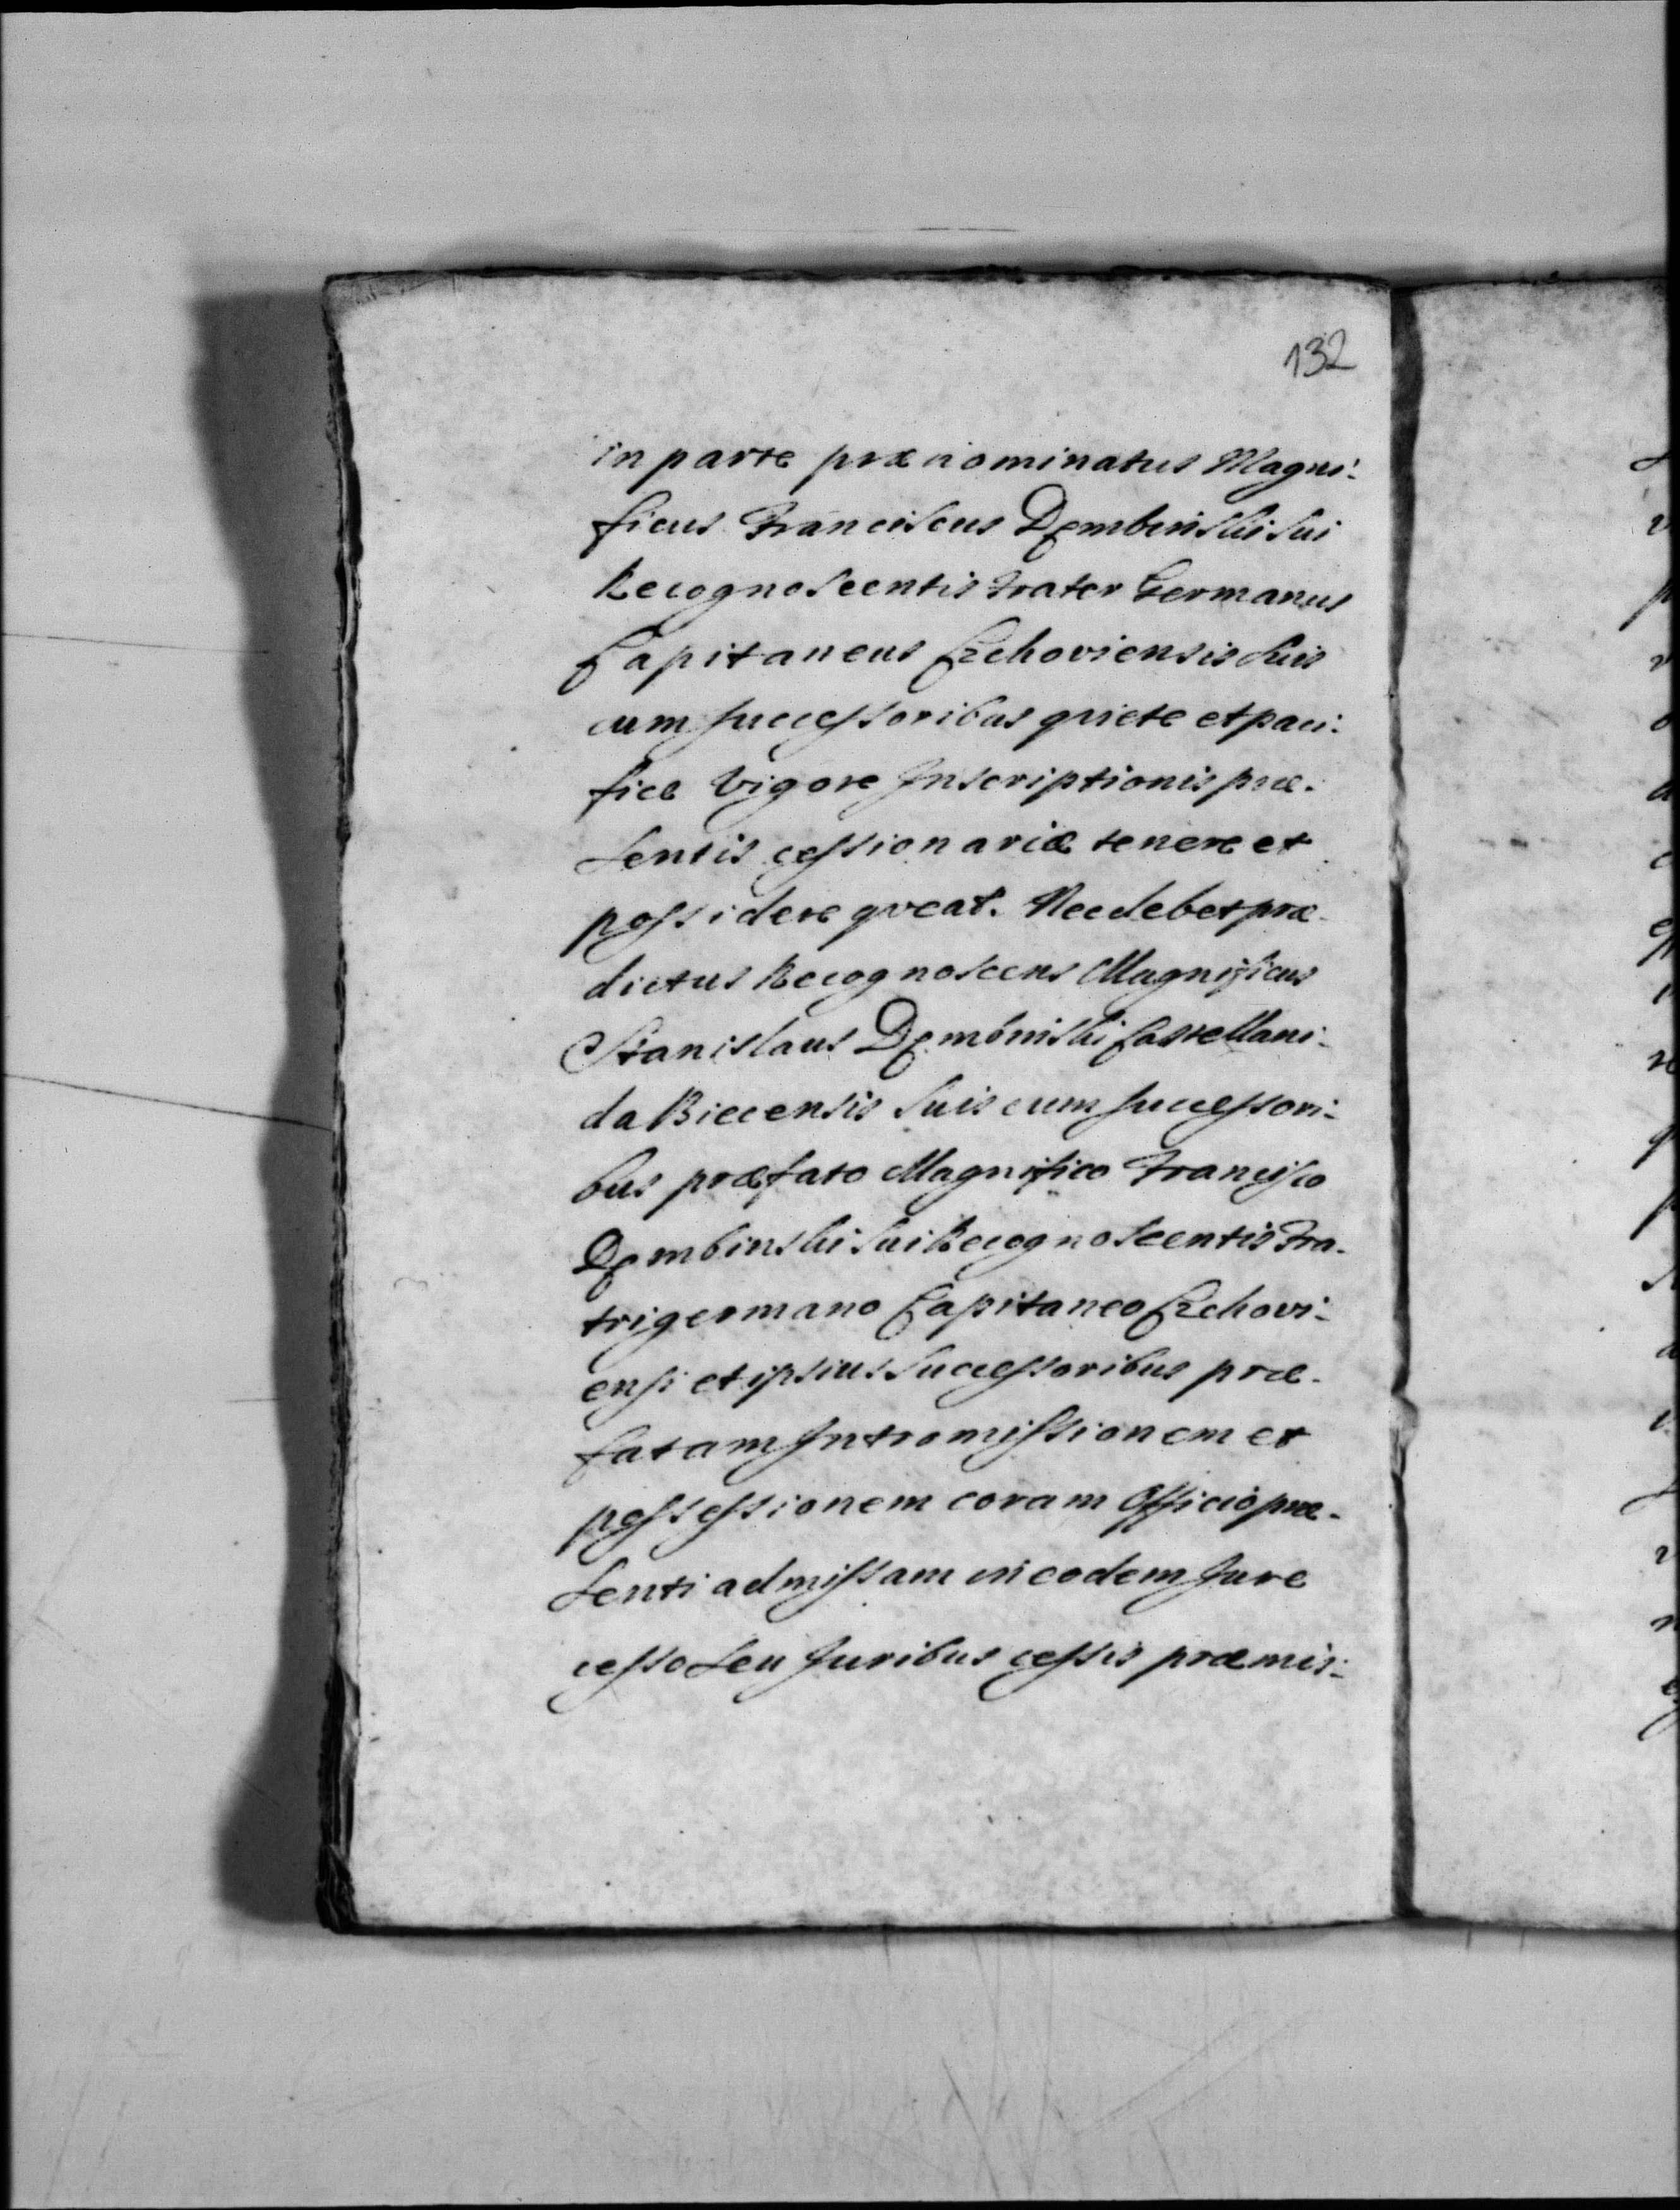 132
in parte prænominatus Magni-
ficus Franciscus Dembinski Sui
Recognoscentis Frater Germanus
Capitaneus Czchoviensis Suis
cum Successoribus quiete et paci-
fice Vigore Inscriptionis præ-
sentis cessionariæ tenere et
possidere qveat. Nec debet præ-
dictus Recognoscens Magnificus
Stanislaus Dembinski Castellani-
da Biecensis Suis cum Successori-
bus præfato Magnifico Francisco
Dembinski Sui Recognoscentis Fra-
tri germano Capitaneo Czchovi-
ensi et ipsius Successoribus præ-
fatam Intromissionem et
possessionem coram Officio præ-
senti admissam in eodem Jure
cesso Seu Juribus cessis præmis-